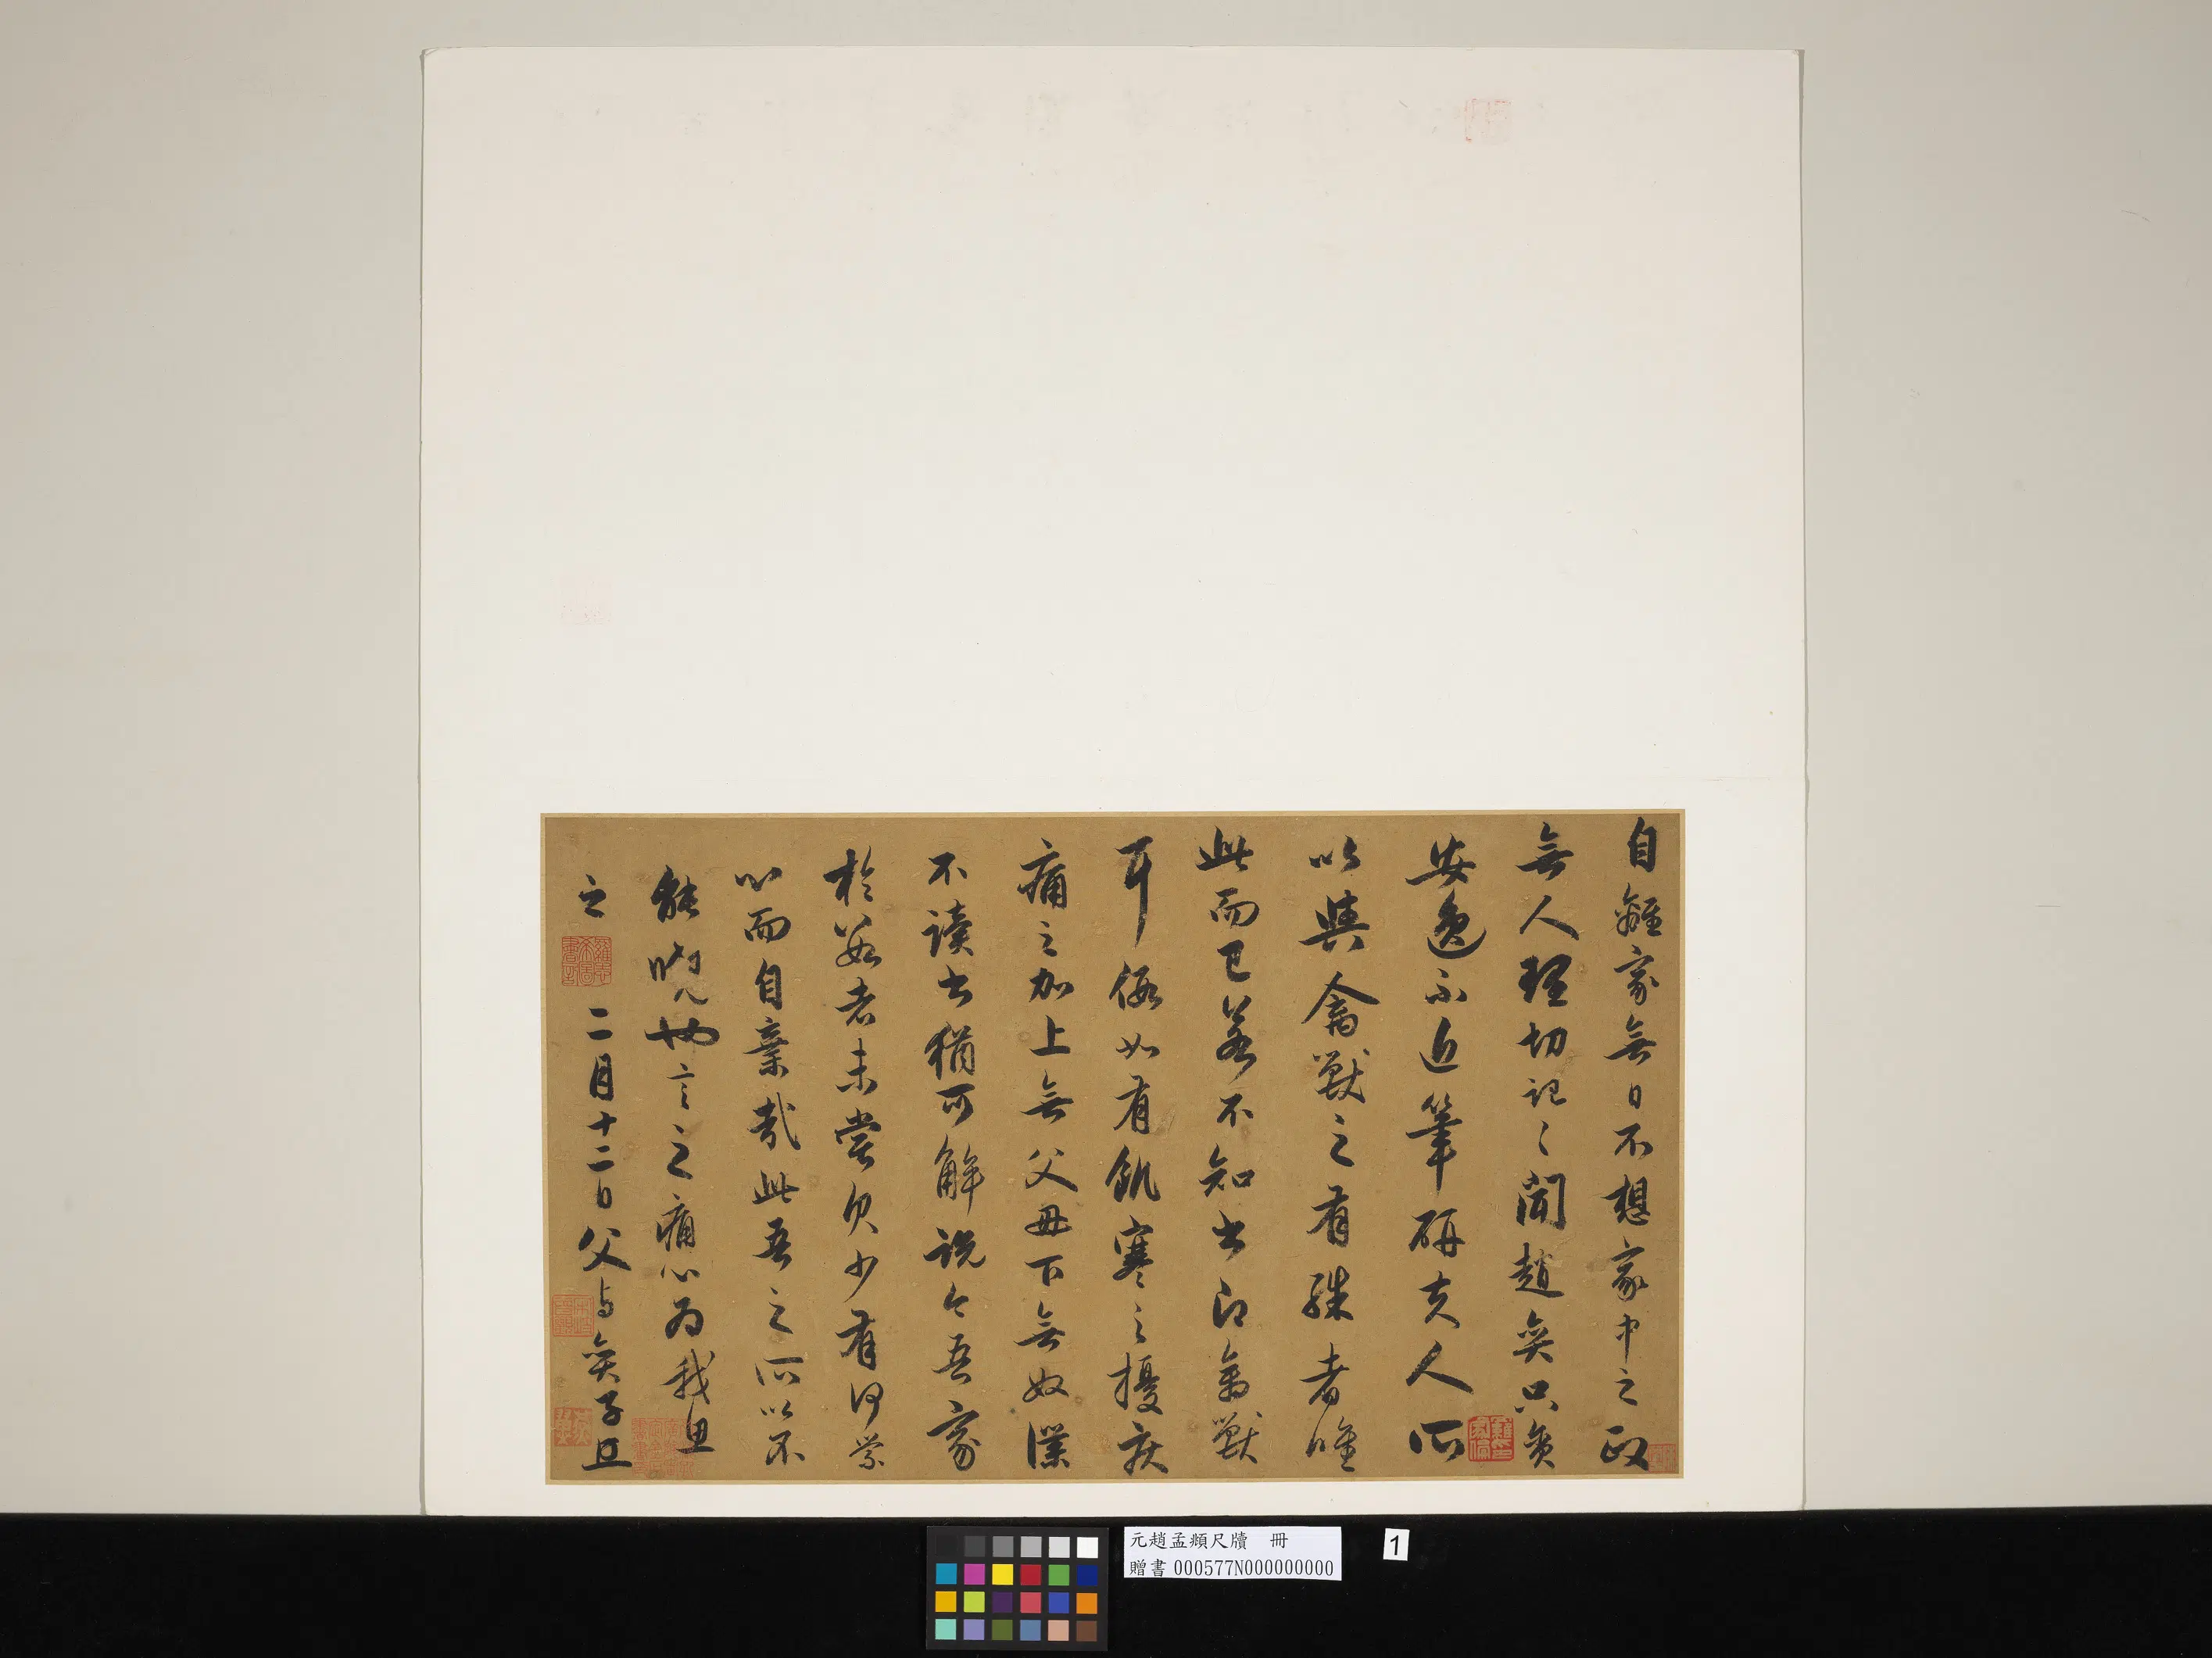 自離家無日不想家中之政
無人理切記々聞趙奕只貪
安逸不近筆硯夫人所
以與禽獸之有殊者唯
此而已若不知書即禽獸
耳假如有飢寒之擾疾
痛之加上無父母下無奴僕
不讀書猶可解說今吾家
於若者未嘗欠少有何縈
心而自棄哉此吾之所以不
能曉也言之痛心為我且
之 二月十二日父与奕子且
元趙孟頫尺牘 冊
贈書 000577N000000000
1